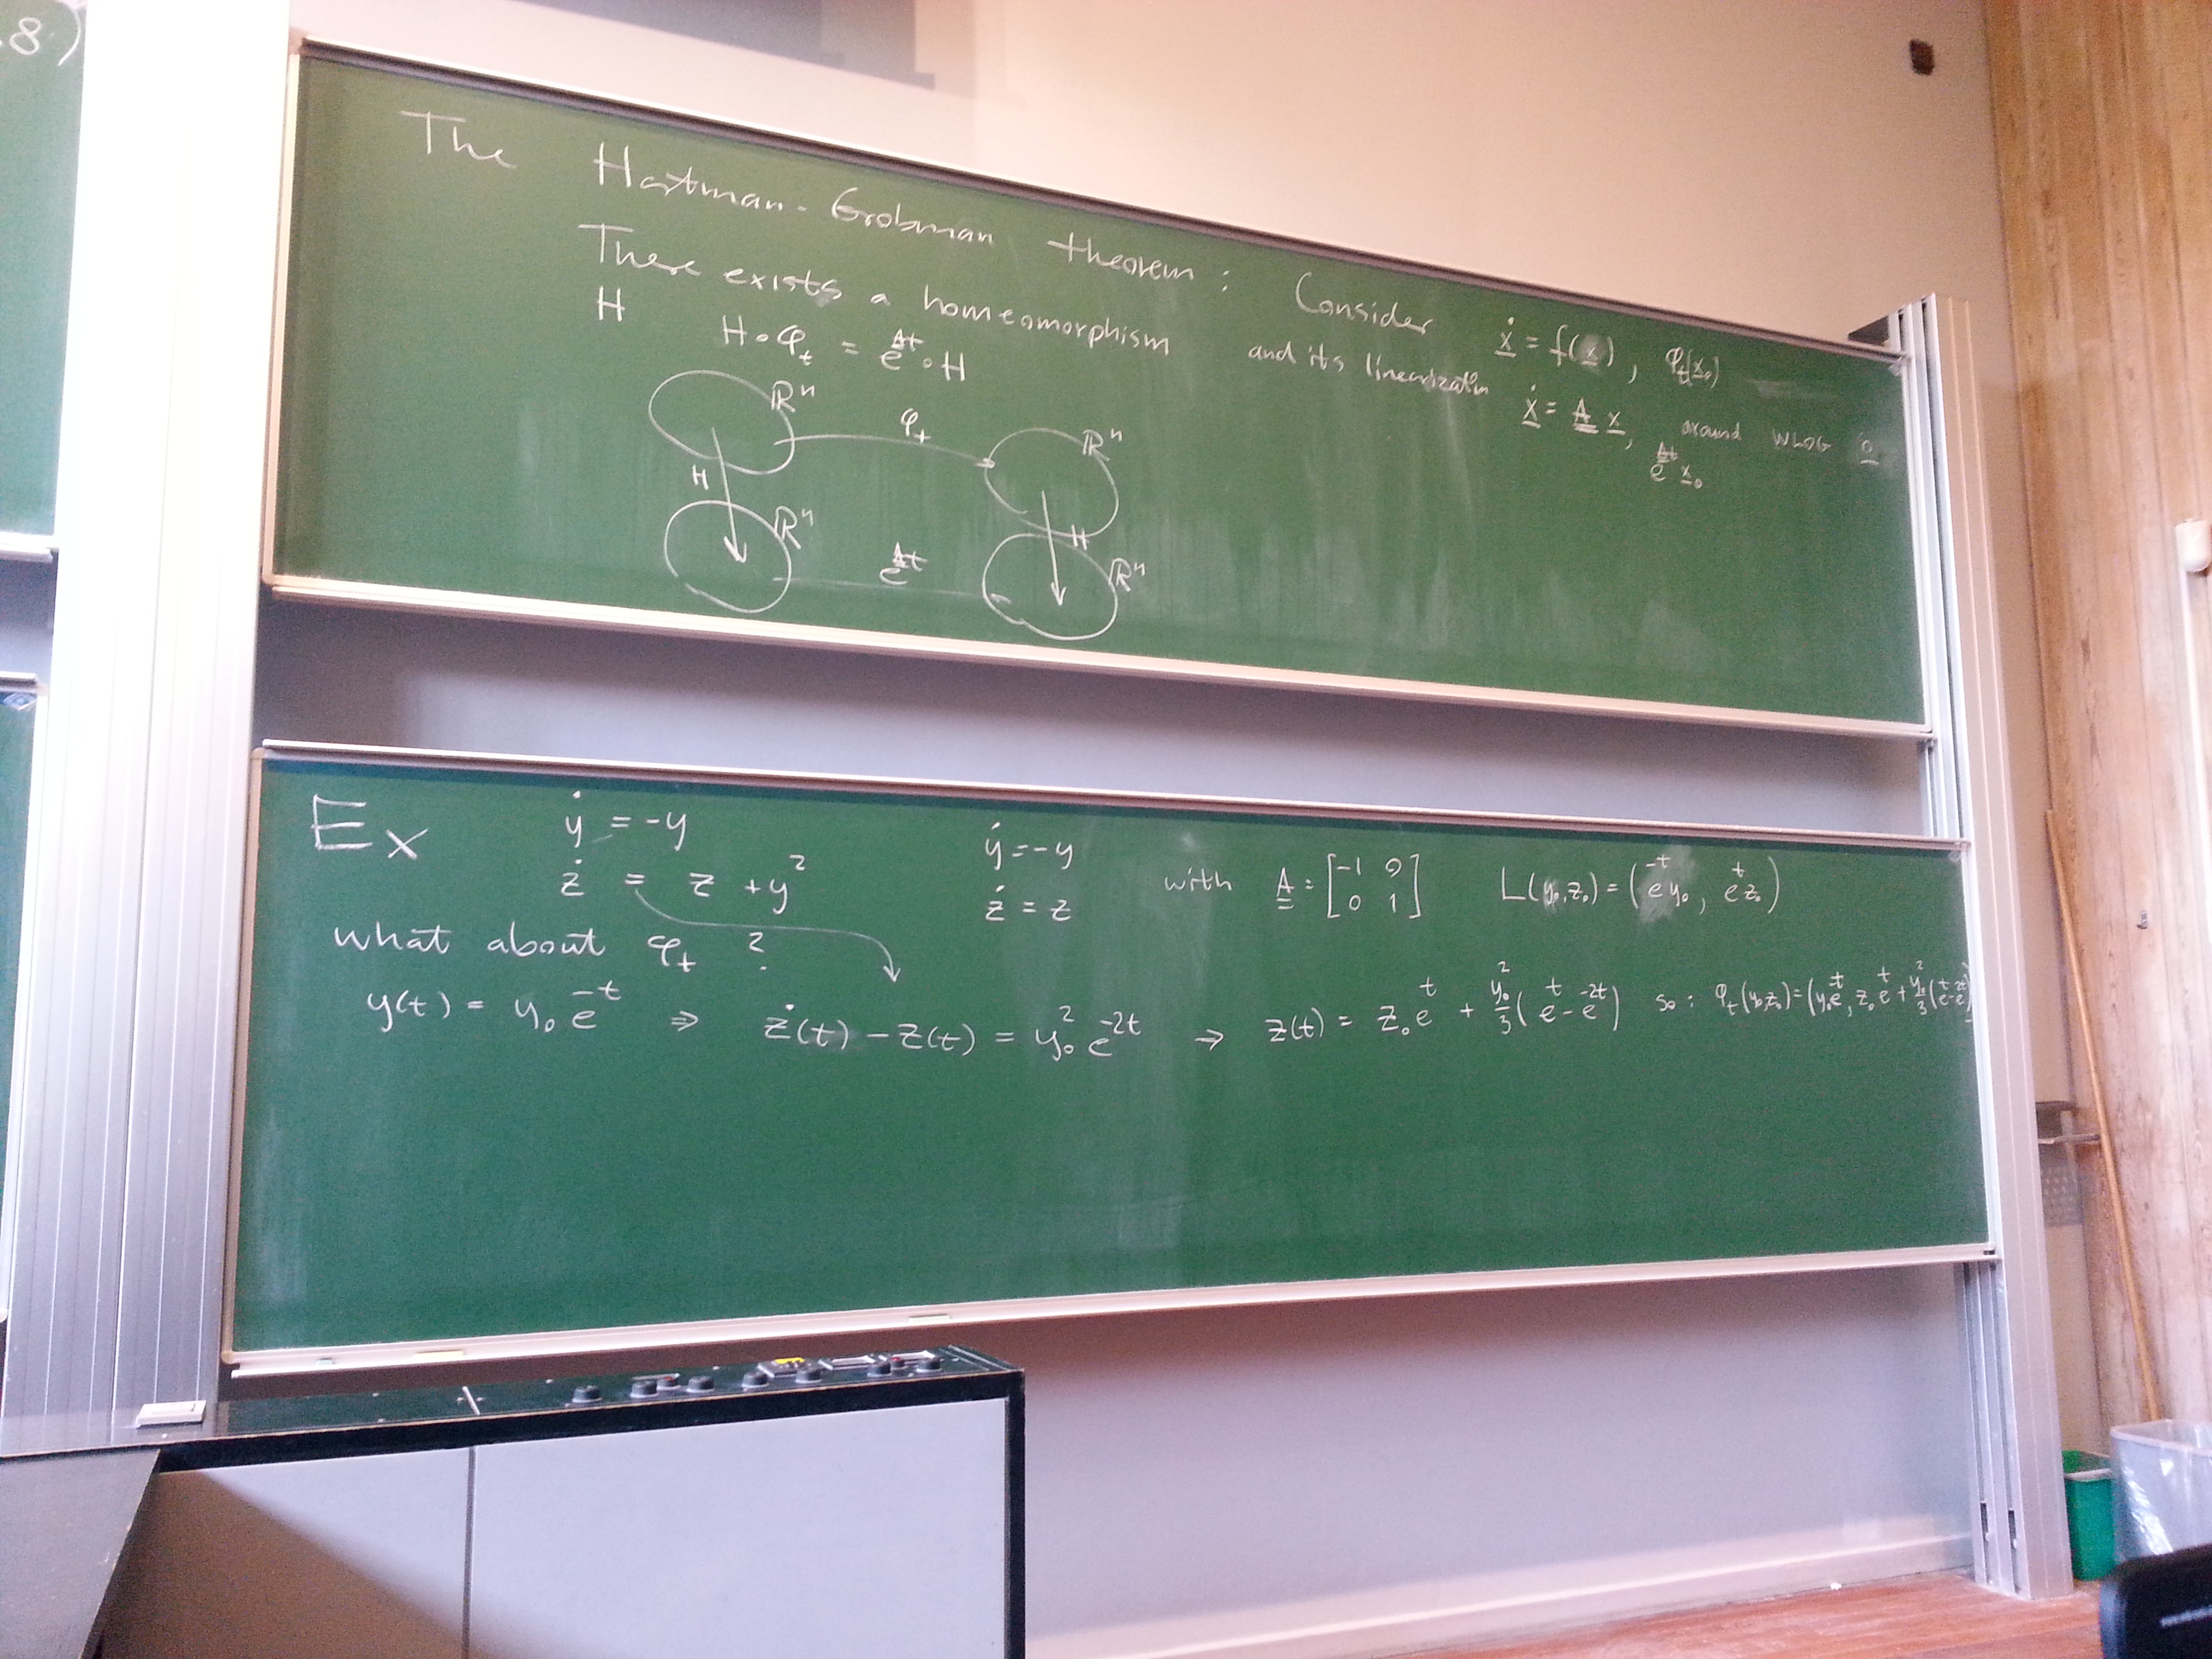 .8)
The Hartman-Grobman theorem: Consider ẋ = f(x), φ_t(x₀)
and its linearization ẋ = A x, around WLOG 0
e^{At} x₀
There exists a homeomorphism
H H∘φ_t = e^{At}∘H
ℝⁿ φ_t ℝⁿ
H H
ℝⁿ e^{At} ℝⁿ
Ex ẏ = -y ẏ = -y with A = [-1 0; 0 1] L(y₀,z₀) = (e^{-t}y₀, e^{t}z₀)
ż = z + y² ż = z
what about φ_t ?
y(t) = y₀e^{-t} ⇒ ż(t) - z(t) = y₀² e^{-2t} ⇒ z(t) = z₀e^{t} + y₀²/3 (e^{t} - e^{-2t}) so: φ_t(y₀,z₀) = (y₀e^{-t}, z₀e^{t} + y₀²/3 (e^{t} - e^{-2t})